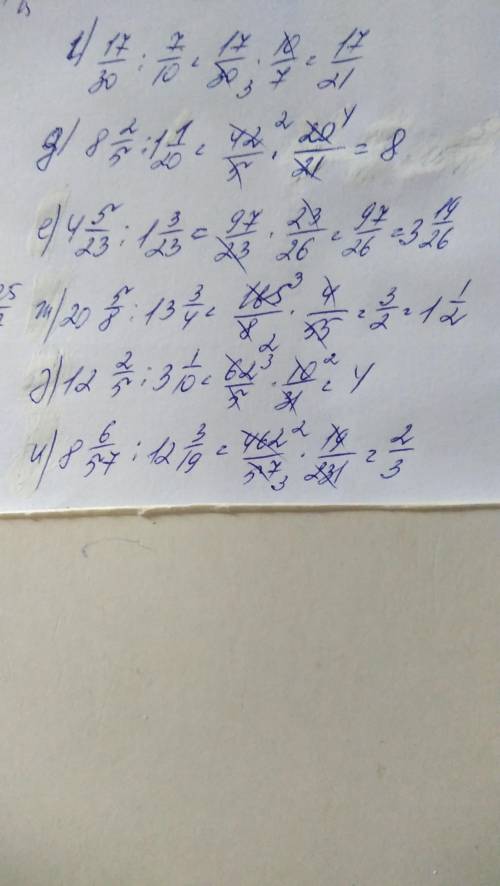 г) 17/30 : 7/10 = 17/30 3 · 10/7 = 17/21
д) 8 2/5 : 1 1/20 = 42/5 2 · 20/21 4 = 8
е) 4 5/23 : 1 3/23 = 97/23 · 23/26 = 97/26 = 3 19/26
ж) 20 5/8 : 13 3/4 = 165/8 3 2 · 4/55 = 3/2 = 1 1/2
з) 12 2/5 : 3 1/10 = 62/5 · 10/31 2 = 4
и) 8 6/57 : 12 3/19 = 462/57 2 3 · 19/231 = 2/3